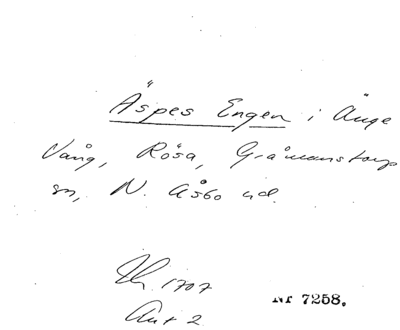 Äspes Engen i Änge
Vång, Rösa, Gråmanstorps
sn, N. Åsbo hd.
1707
Ant 2
Nr 7258.